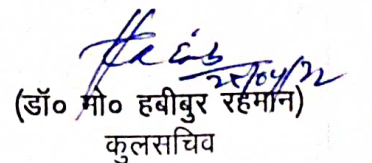 25/04/22
(डॉ० मो० हबीबुर रहमान)
कुलसचिव